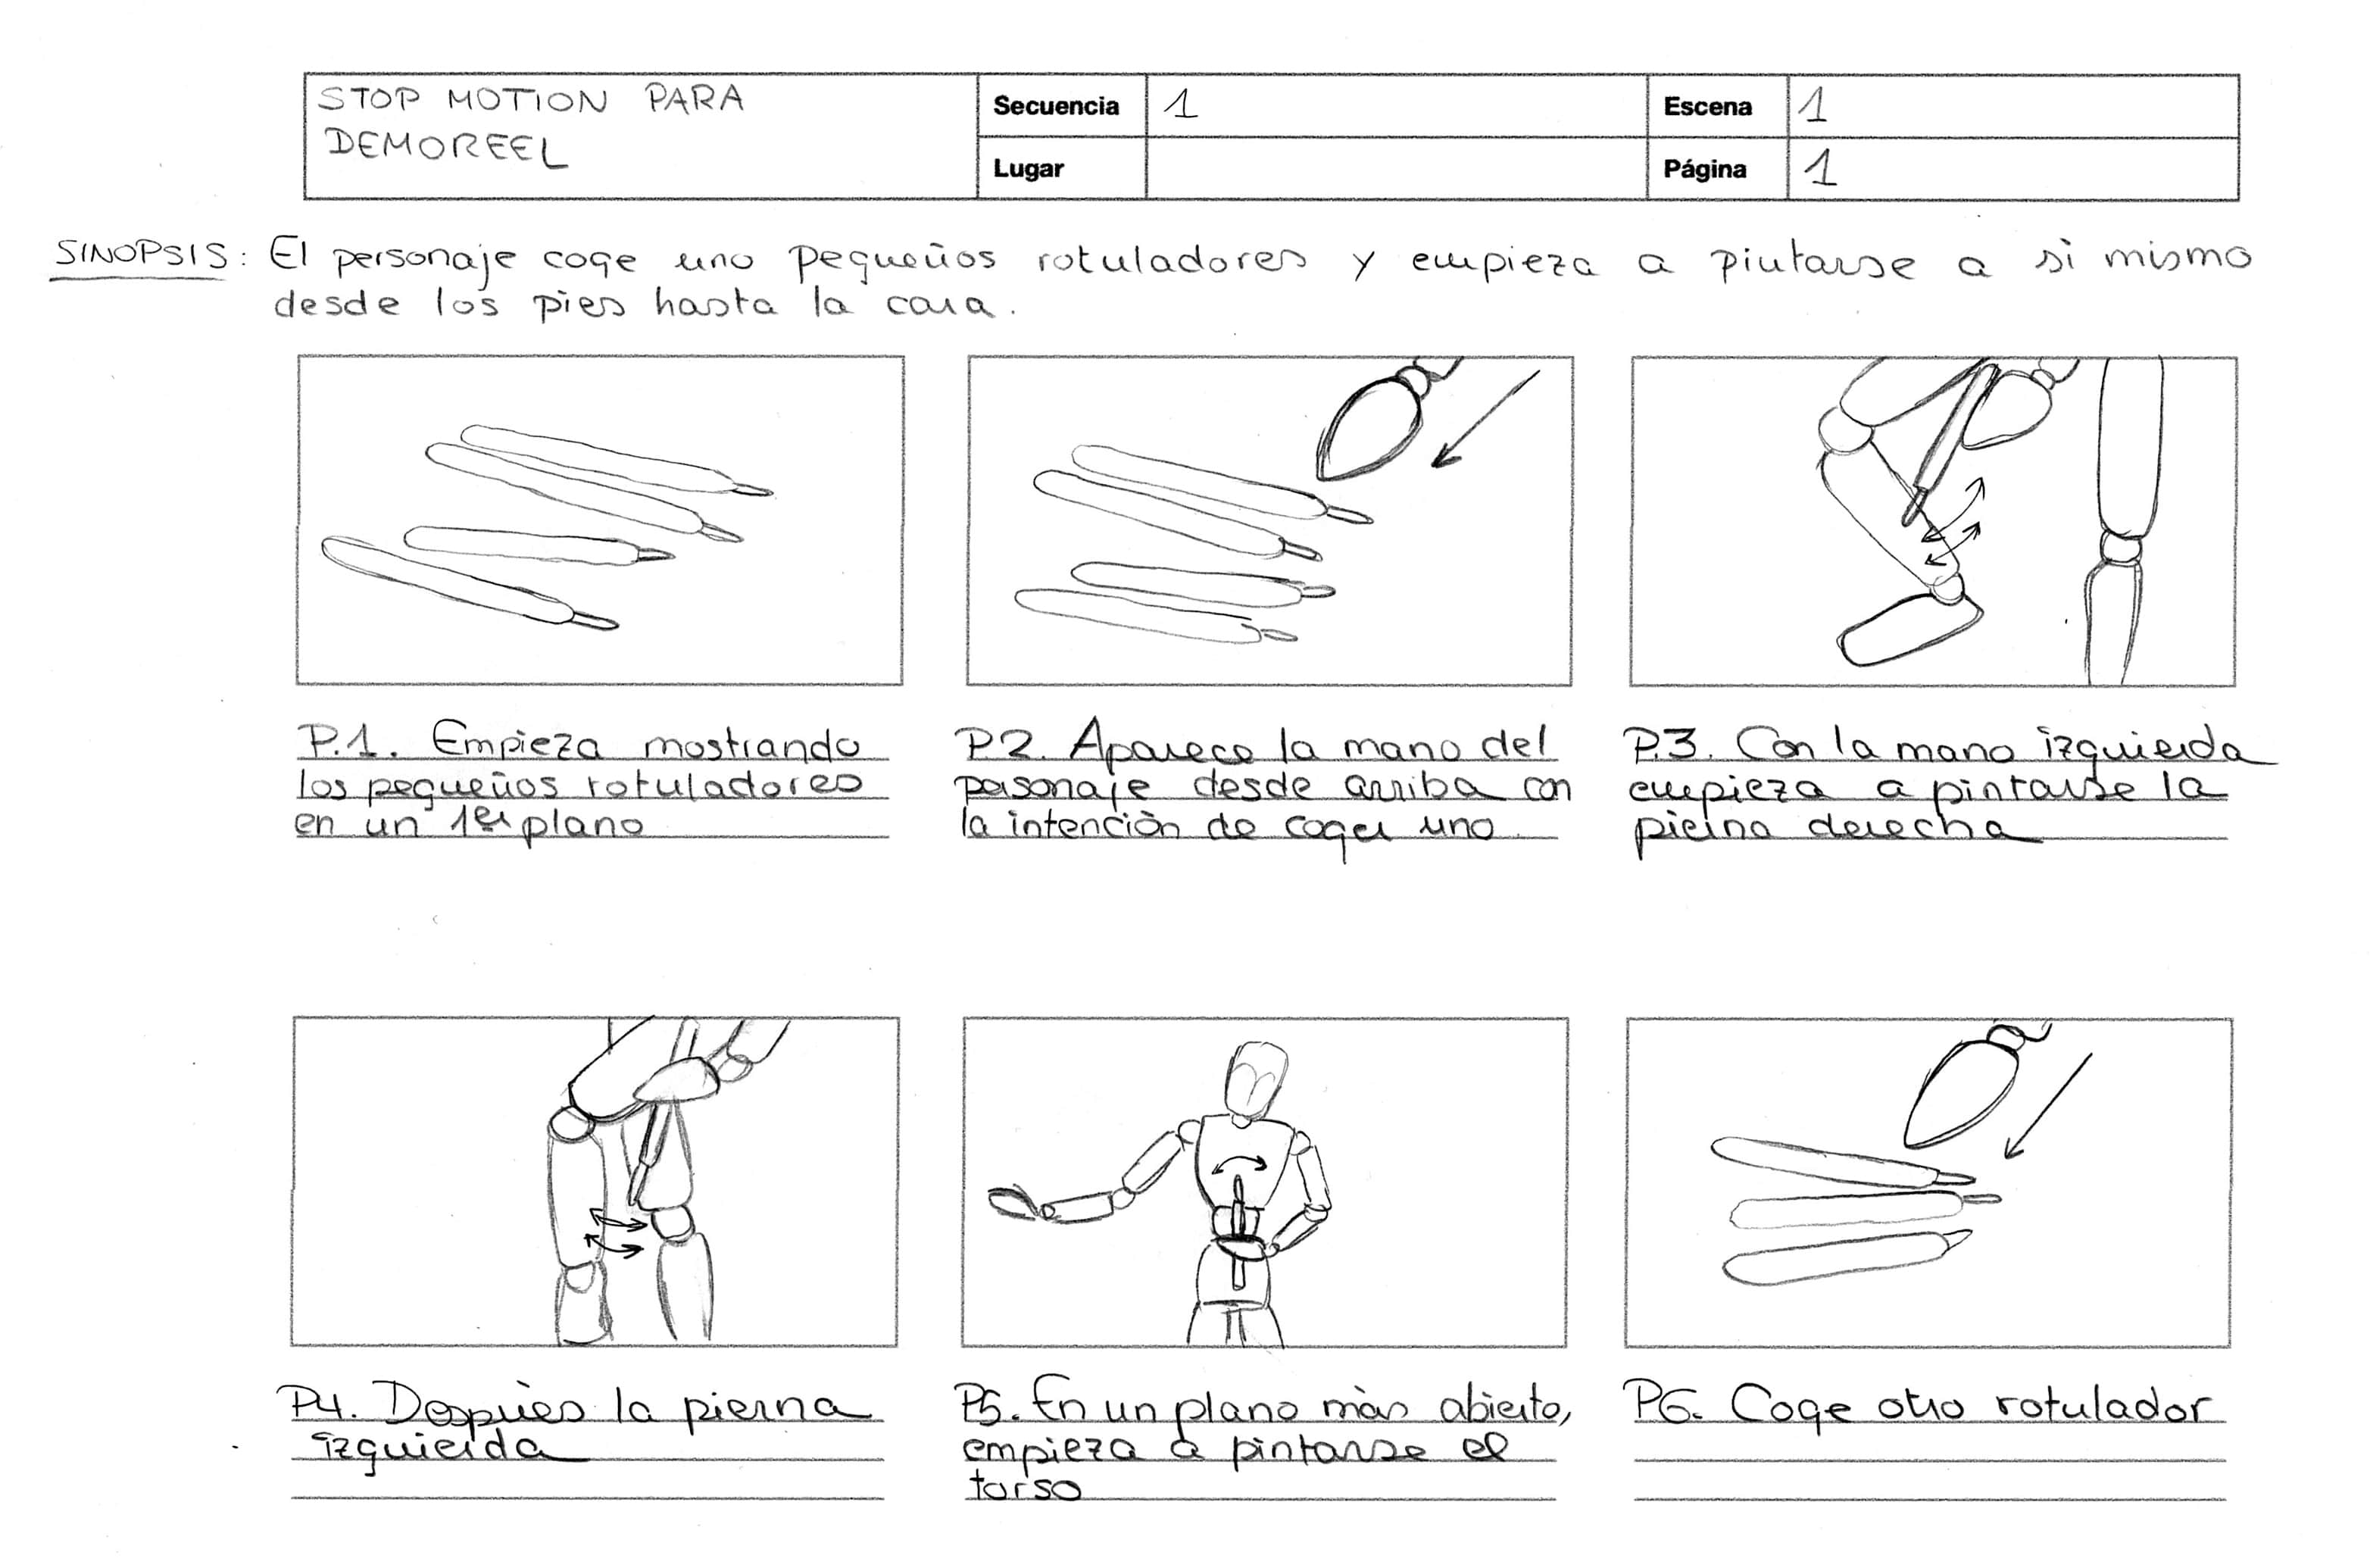 STOP MOTION PARA
DEMOREEL
Secuencia 1
Escena 1
Lugar
Página 1
SINOPSIS: El personaje coge uno pequeños rotuladores y empieza a pintarse a si mismo
desde los pies hasta la cara.
P.1. Empieza mostrando
los pequeños rotuladores
en un 1er plano
P.2. Aparece la mano del
personaje desde arriba con
la intención de coger uno
P.3. Con la mano izquierda
empieza a pintarse la
pierna derecha
P4. Despùes la pierna
izquierda
P5. En un plano màs abierto,
empieza a pintarse el
torso
P6. Coge otro rotulador